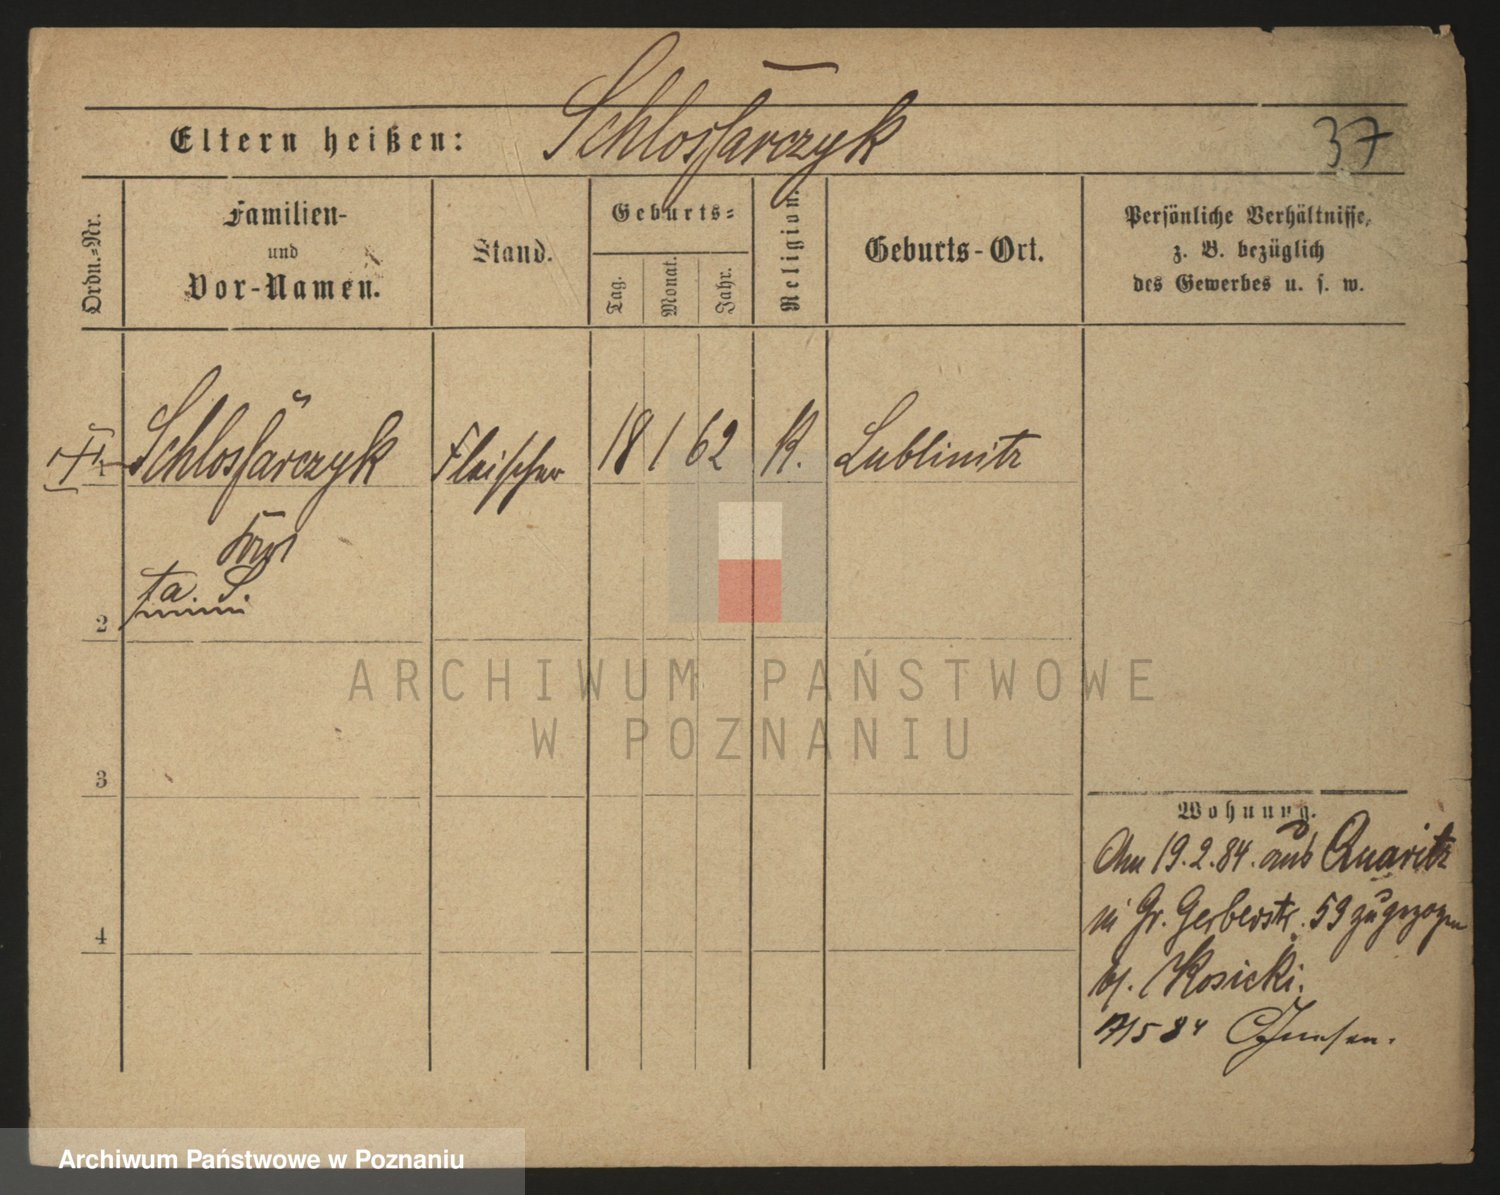 Eltern heißen: Schlossarczyk
37
Ordn.-Nr.
Familien-
und
Vor-Namen.
Stand.
Geburts-
Tag.
Monat.
Jahr.
Religion.
Geburts-Ort.
Persönliche Verhältnisse,
z. B. bezüglich
des Gewerbes u. s. w.
Schlossarczyk Fleischer 18 1 62 K. Lublinitz
ta. S.
2
3
4
ARCHIWUM PAŃSTWOWE
W POZNANIU
Wohnung.
Am 19.2.84. aus Quaritz
in Gr. Gerberstr. 59 zugezogen
bj. Kosicki.
17/5 84
Archiwum Państwowe w Poznaniu